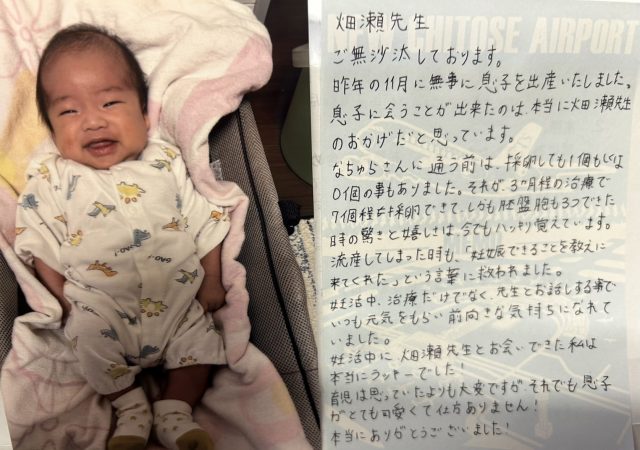 畑瀬先生
ご無沙汰しております。
昨年の11月に無事に息子を出産いたしました。
息子に会うことが出来たのは、本当に畑瀬先生
のおかげだと思っています。
なちゅらさんに通う前は、採卵しても1個もしくは
0個の事もありました。それが、3ヶ月程の治療で
7個程も採卵できて、しかも胚盤胞も3つできた
時の驚きと嬉しさは、今でもハッキリ覚えています。
流産してしまった時も、「妊娠できることを教えに
来てくれた」という言葉に救われました。
妊活中、治療だけでなく、先生とお話しする事で
いつも元気をもらい前向きな気持ちになれて
いました。
妊活中に畑瀬先生とお会いできた私は
本当にラッキーでした!
育児は思っていたよりも大変ですが、それでも息子
がとても可愛くて仕方ありません!
本当にありがとうございました!
CHITOSE AIRPORT
GAO~!